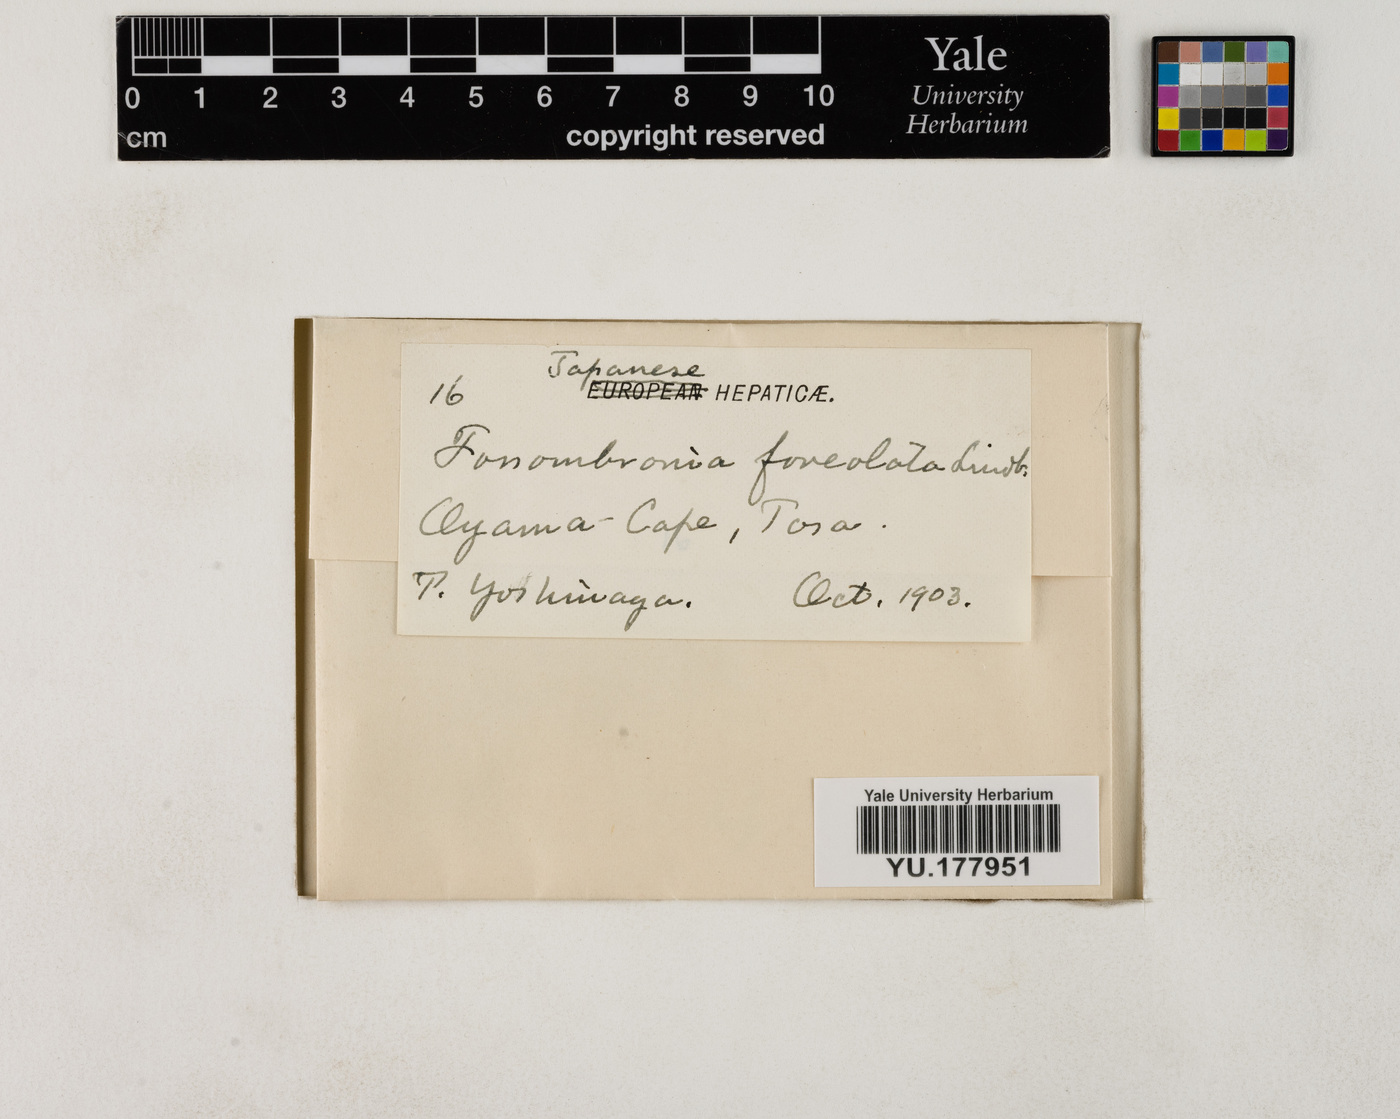 0 1 2 3 4 5 6 7 8 9 10
cm copyright reserved
Yale
University
Herbarium
Japanese
16 EUROPEAN HEPATICÆ.
Fossombronia foveolata Lindb.
Oyama-Cape, Tosa.
T. Yoshinaga. Oct. 1903.
Yale University Herbarium
YU.177951